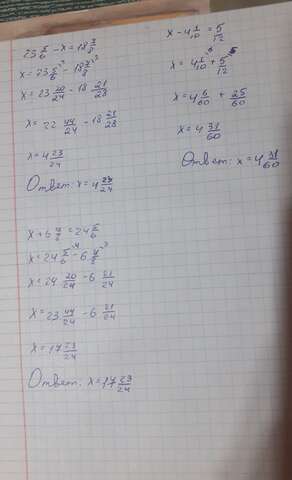 23 5/6 - x = 18 7/8
x = 23 5/6 - 18 7/8
x = 23 20/24 - 18 21/23
x = 22 44/24 - 18 21/23
x = 4 23/24
Ответ: x = 4 23/24
x + 6 7/8 = 24 5/6
x = 24 5/6 - 6 7/8
x = 24 20/24 - 6 21/24
x = 23 44/24 - 6 21/24
x = 17 23/24
Ответ: x = 17 23/24
x - 4 1/10 = 5/12
x = 4 1/10 + 5/12
x = 4 6/60 + 25/60
x = 4 31/60
Ответ: x = 4 31/60